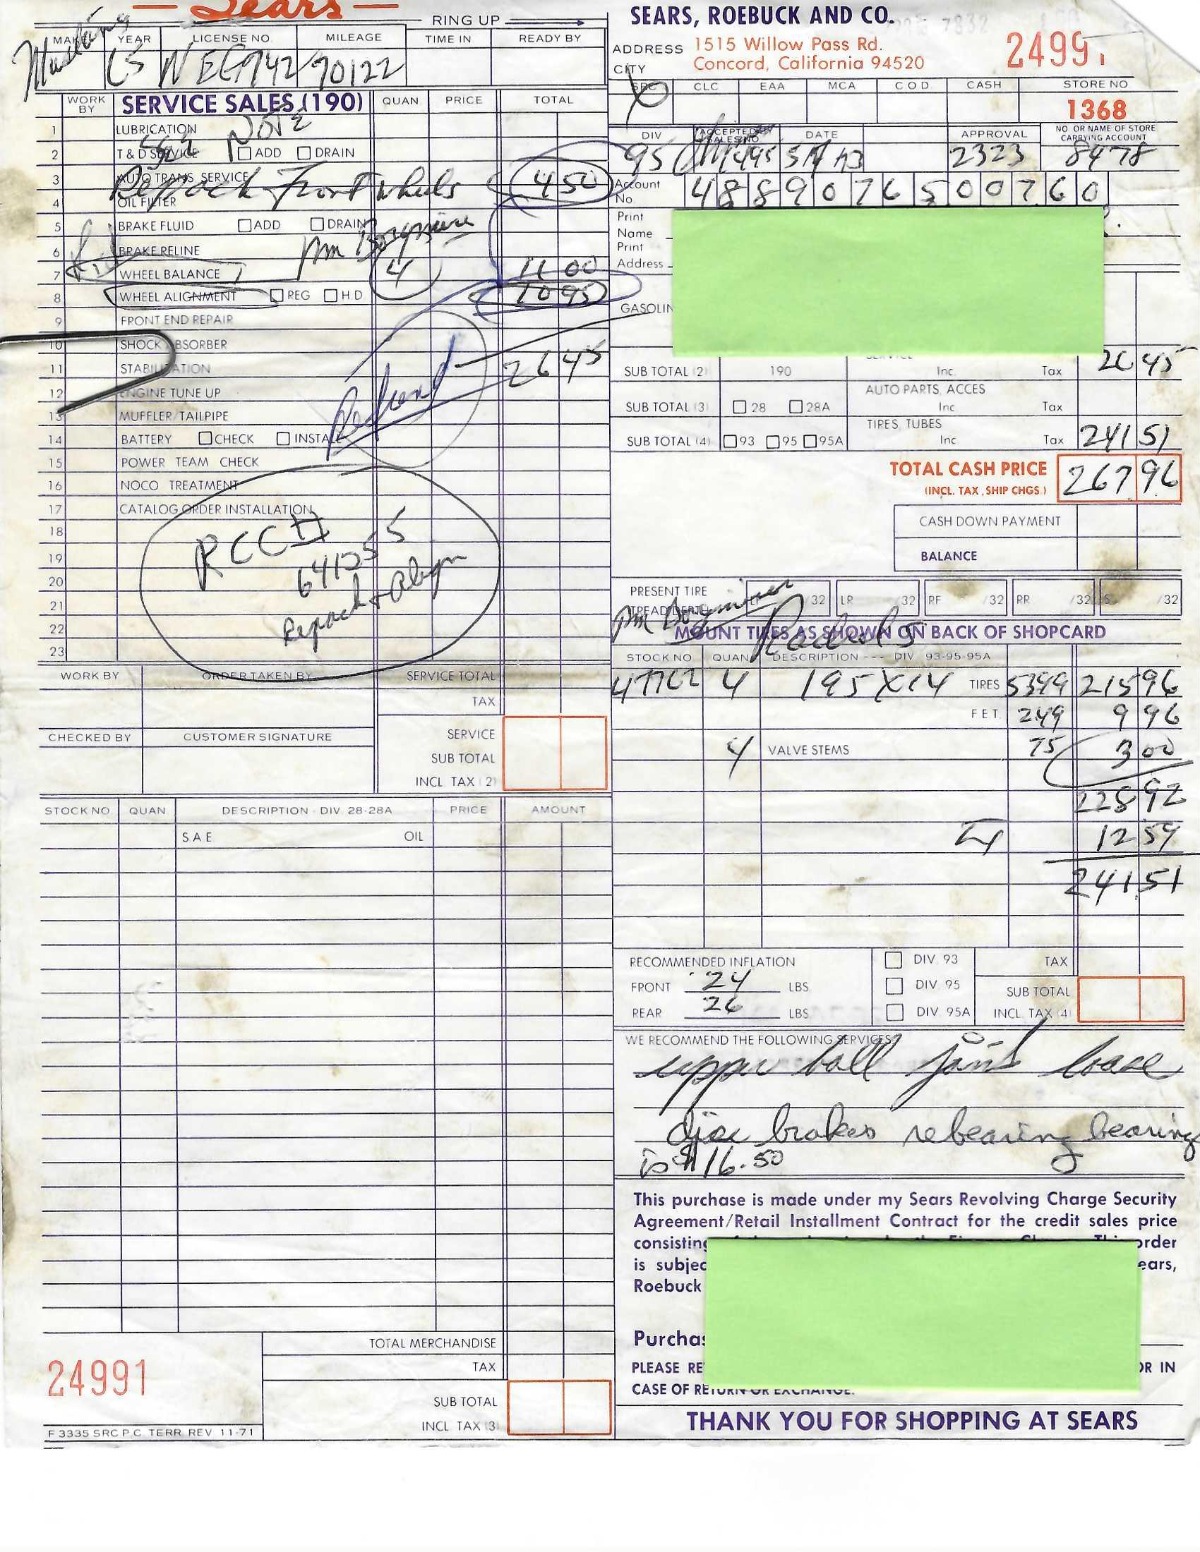 Sears
RING UP
MAKE YEAR LICENSE NO. MILEAGE TIME IN READY BY
Mustang 65 NEG742 70122
WORK BY SERVICE SALES (190) QUAN PRICE TOTAL
1 LUBRICATION
See Note
2 T & D SERVICE ADD DRAIN
3 AUTO TRANS SERVICE
Repack Front wheels 4 50
4 OIL FILTER
5 BRAKE FLUID ADD DRAIN
6 BRAKE RELINE
7 WHEEL BALANCE 4 11 00
8 WHEEL ALIGNMENT REG H D 10 95
9 FRONT END REPAIR
10 SHOCK ABSORBER
11 STABILIZATION 26 45
Refund
12 ENGINE TUNE UP
13 MUFFLER/TAILPIPE
14 BATTERY CHECK INSTALL
15 POWER TEAM CHECK
16 NOCO TREATMENT
17 CATALOG ORDER INSTALLATION
18
RCC#
19
641255
20
Repack + Align
21
22
23
WORK BY ORDER TAKEN BY SERVICE TOTAL
TAX
CHECKED BY CUSTOMER SIGNATURE SERVICE
SUB TOTAL
INCL TAX (2)
STOCK NO QUAN DESCRIPTION - DIV 28-28A PRICE AMOUNT
S A E OIL
TOTAL MERCHANDISE
TAX
24991
SUB TOTAL
INCL TAX (3)
F 3335 SRC P.C. TERR. REV. 11-71
SEARS, ROEBUCK AND CO.
ADDRESS 1515 Willow Pass Rd.
CITY Concord, California 94520
24991
SRC CLC EAA MCA C O D CASH STORE NO
X 1368
DIV ACCEPTED BY SALES NO DATE APPROVAL NO OR NAME OF STORE CARRYING ACCOUNT
95 2323 8478
Account No 4 8 8 9 0 7 6 5 0 0 7 6 0
Print Name
Print Address
GASOLIN
SUB TOTAL (2) 190 Inc. Tax 26 45
AUTO PARTS, ACCES
SUB TOTAL (3) 28 28A Inc Tax
TIRES, TUBES
SUB TOTAL (4) 93 95 95A Inc Tax 241 51
TOTAL CASH PRICE
(INCL. TAX, SHIP CHGS.) 267 96
CASH DOWN PAYMENT
BALANCE
PRESENT TIRE
TREAD DEPTH LF /32 LR /32 RF /32 RR /32 /32
MOUNT TIRES AS SHOWN ON BACK OF SHOPCARD
Radials
STOCK NO QUAN DESCRIPTION --- DIV 93-95-95A
47762 4 195X14 TIRES 5399 215 96
F E T 249 9 96
4 VALVE STEMS 75 3 00
228 92
12 59
241 51
RECOMMENDED INFLATION
FRONT 24 LBS
REAR 26 LBS
DIV 93
DIV 95
DIV 95A
TAX
SUB TOTAL
INCL. TAX (4)
WE RECOMMEND THE FOLLOWING SERVICES:
upper ball joints loose
disc brakes rebearing bearing
is $16.50
This purchase is made under my Sears Revolving Charge Security
Agreement/Retail Installment Contract for the credit sales price
consisting
order
is subjec ears,
Roebuck
Purchas
PLEASE RE OR IN
CASE OF RETURN OR EXCHANGE.
THANK YOU FOR SHOPPING AT SEARS